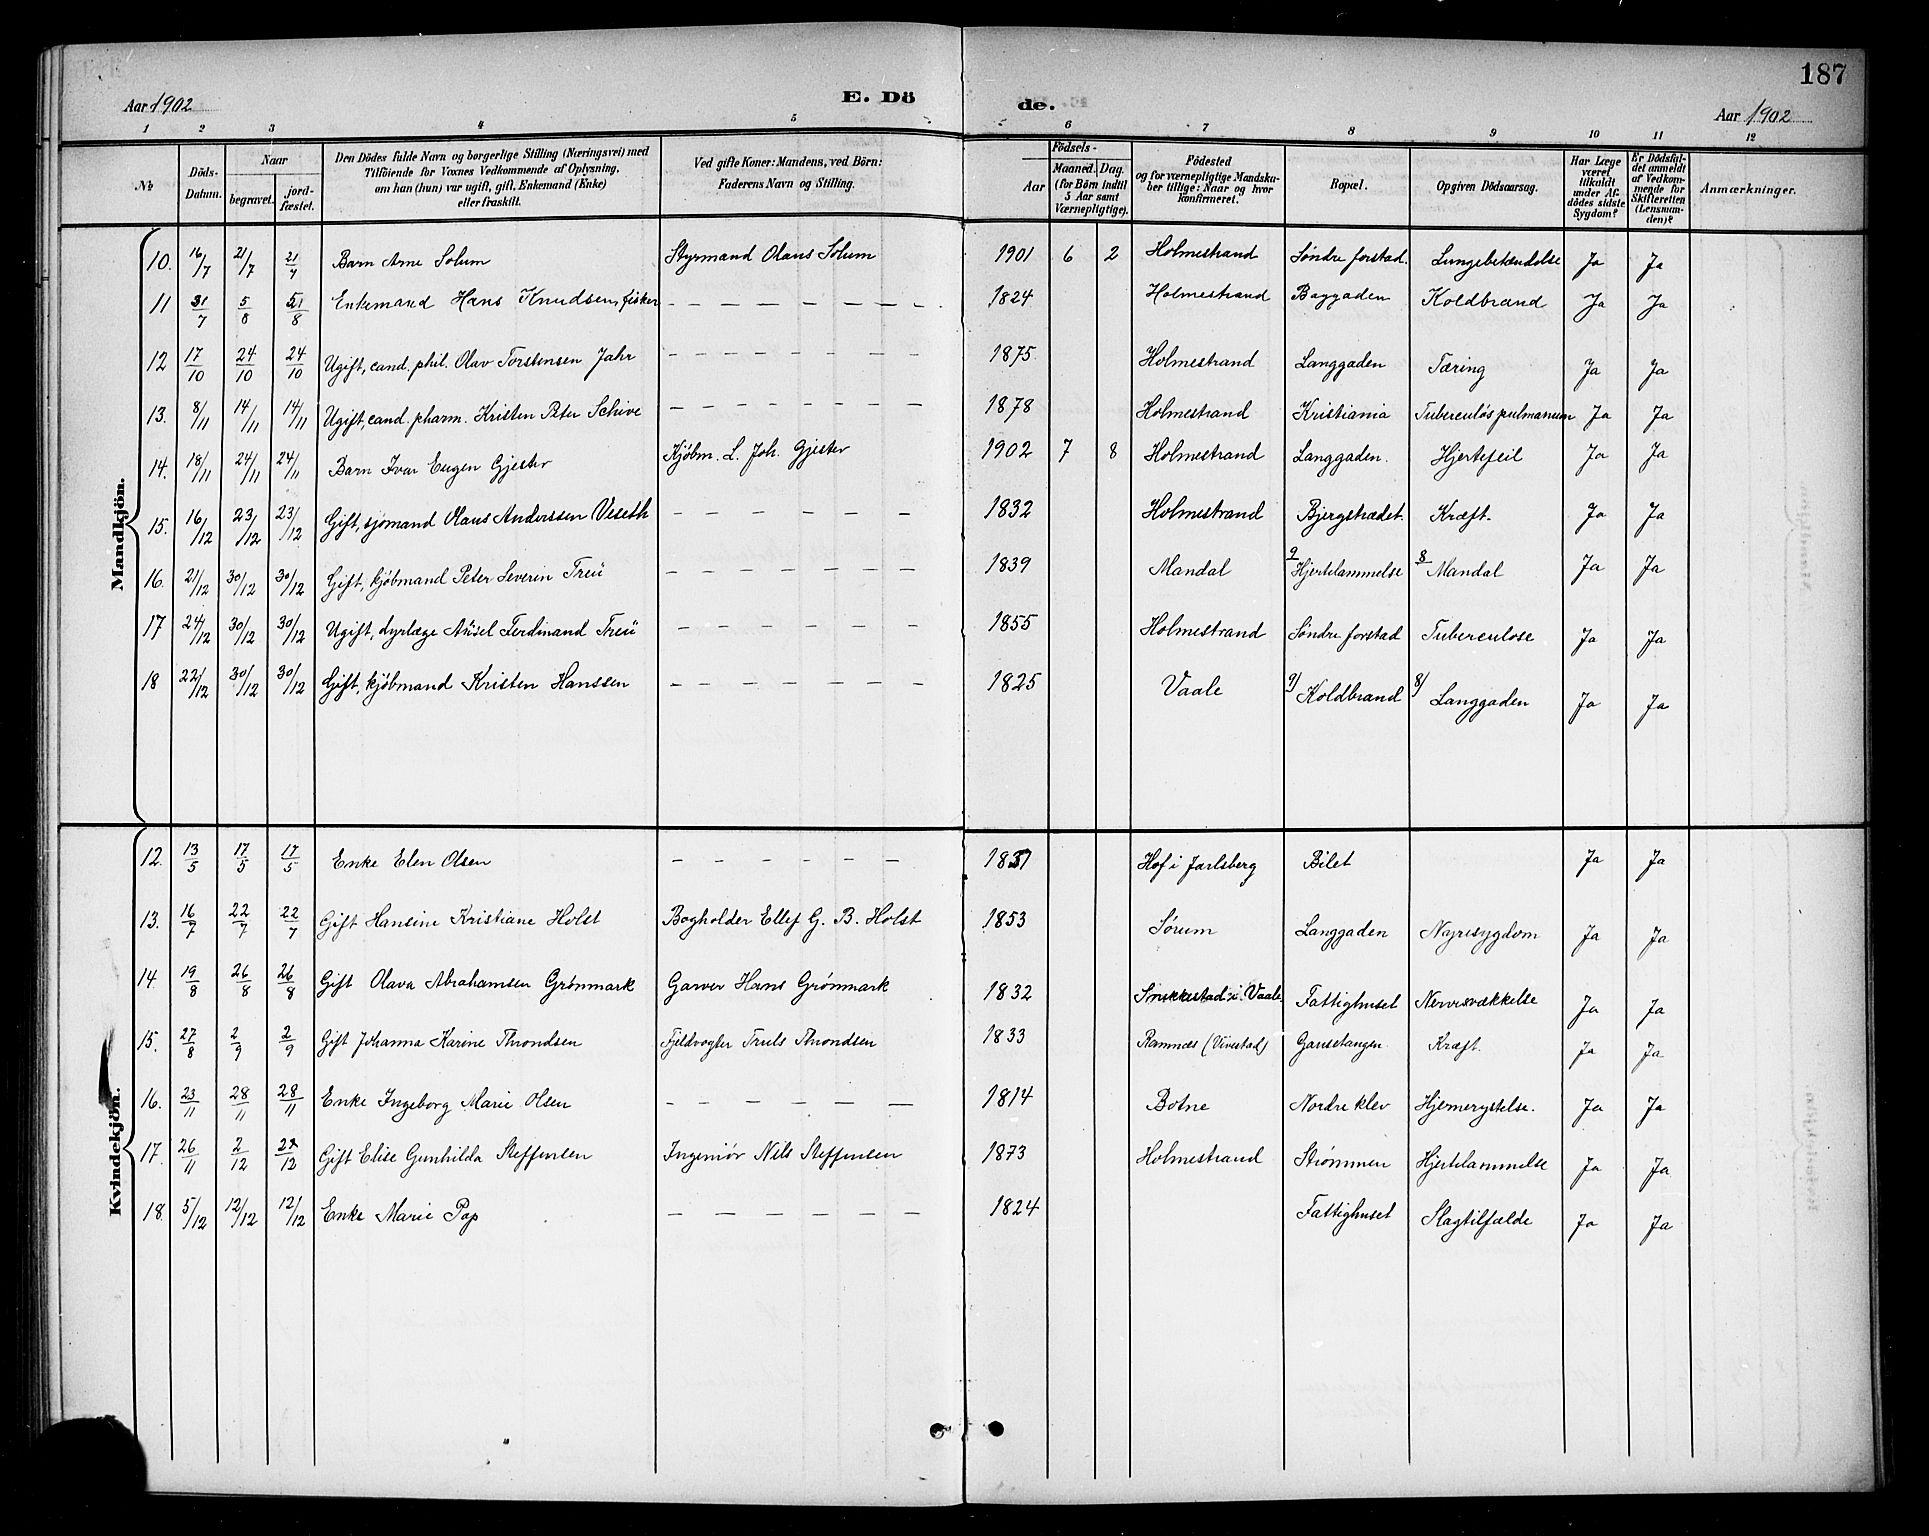 187
Aar 1902 E. Dö de. Aar 1902
1 2 3 4 5 6 7 8 9 10 11 12
No Döds-Datum. Naar begravet. jord-fæstet. Den Dödes fulde Navn og borgerlige Stilling (Næringsvei) med Tilföiende for Voxnes Vedkommende af Oplysning, om han (hun) var ugift, gift, Enkemand (Enke) eller fraskilt. Ved gifte Koner: Mandens, ved Börn: Faderens Navn og Stilling. Födsels- Aar Maaned. Dag. (for Börn indtil 5 Aar samt Værnepligtige). Födested og for værnepligtige Mandskaber tillige: Naar og hvor konfirmeret. Bopæl. Opgiven Dödsaarsag. Har Læge været tilkaldt under Afdödes sidste Sygdom? Er Dödsfaldet anmeldt af Vedkommende for Skifteretten (Lensmanden)? Anmærkninger.
Mandkjön.
10. 16/7 21/7 21/7 Barn Arne Solum Styrmand Olaus Solum 1901 6 2 Holmestrand Søndre forstad. Lungebetændelse Ja Ja
11 31/7 5/8 5/8 Enkemand Hans Knudsen, fisker — — — — — — 1824 Holmestrand Baggaden Koldbrand Ja Ja
12 17/10 24/10 24/10 Ugift, cand. phil. Olav Torstensen Jahr — — — — — — 1875 Holmestrand Langgaden Tæring Ja Ja
13. 8/11 14/11 14/11 Ugift, cand. pharm. Kristen Peter Schive — — — — — — 1878 Holmestrand Kristiania Tuberculøs pulmanum Ja Ja
14. 18/11 24/11 24/11 Barn Ivar Eugen Gjester Kjøbm. L. Joh. Gjester 1902 7 8 Holmestrand Langgaden. Hjertefeil Ja Ja
15. 16/12 23/12 23/12 Gift, sjømand Olaus Anderssen Veseth — — — — — — 1832 Holmestrand Bjergstrædet. Kræft. Ja Ja
16. 21/12 30/12 30/12 Gift, kjøbmand Peter Severin Treü — — — — — — 1839 Mandal 9/ Hjertelammelse 8/ Mandal Ja Ja
17 24/12 30/12 30/12 Ugift, dyrlæge Aüsel Ferdinand Treü — — — — — — 1855 Holmestrand Søndre forstad Tuberculose Ja Ja
18 22/12 30/12 30/12 Gift, kjøbmand Kristen Hanssen — — — — — — 1825 Vaale 9/ Koldbrand 8/ Langgaden Ja Ja
Kvindekjön.
12. 13/5 17/5 17/5 Enke Elen Olsen — — — — — — Hof i Jarlsberg Bilet Ja Ja
13. 16/7 22/7 22/7 Gift Hansine Kristiane Holst Bogholder Ellef G. B. Holst 1853 Sørum Langgaden Nyresygdom Ja Ja
14. 19/8 26/8 26/8 Gift Olava Abrahamsen Grønmark Garver Hans Grønmark 1832 Snekkestad i Vaale Fattighuset Nervesvækkelse Ja Ja
15. 27/8 2/9 2/9 Gift Johanna Karine Throndsen Fjeldvogter Truls Throndsen 1833 Ramnæs (Vivestad) Gausetangen Kræft. Ja Ja
16. 23/11 28/11 28/11 Enke Ingeborg Marie Olsen — — — — — — 1814 Botne Nordre klev Hjernerystelse. Ja Ja
17. 26/11 2/12 2/12 Gift Elise Gunhilda Steffensen Ingeniør Nils Steffensen 1873 Holmestrand Strømmen Hjertelammelse Ja Ja
18. 5/12 12/12 12/12 Enke Marie Pap — — — — — — 1824 Fattighuset Slagtilfælde Ja Ja